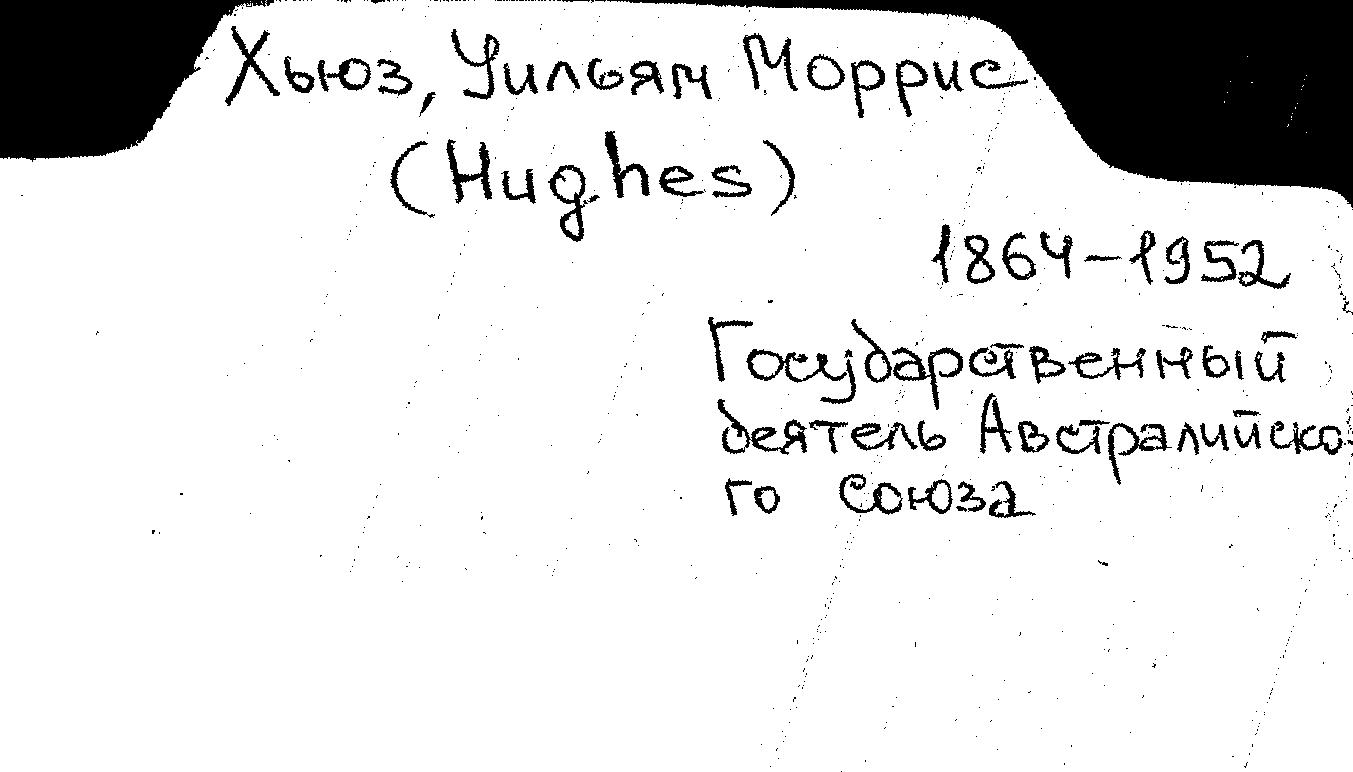 Хьюз, Уильям Моррис
(Hughes)
1864-1952
Государственный
деятель Австралийско-
го Союза